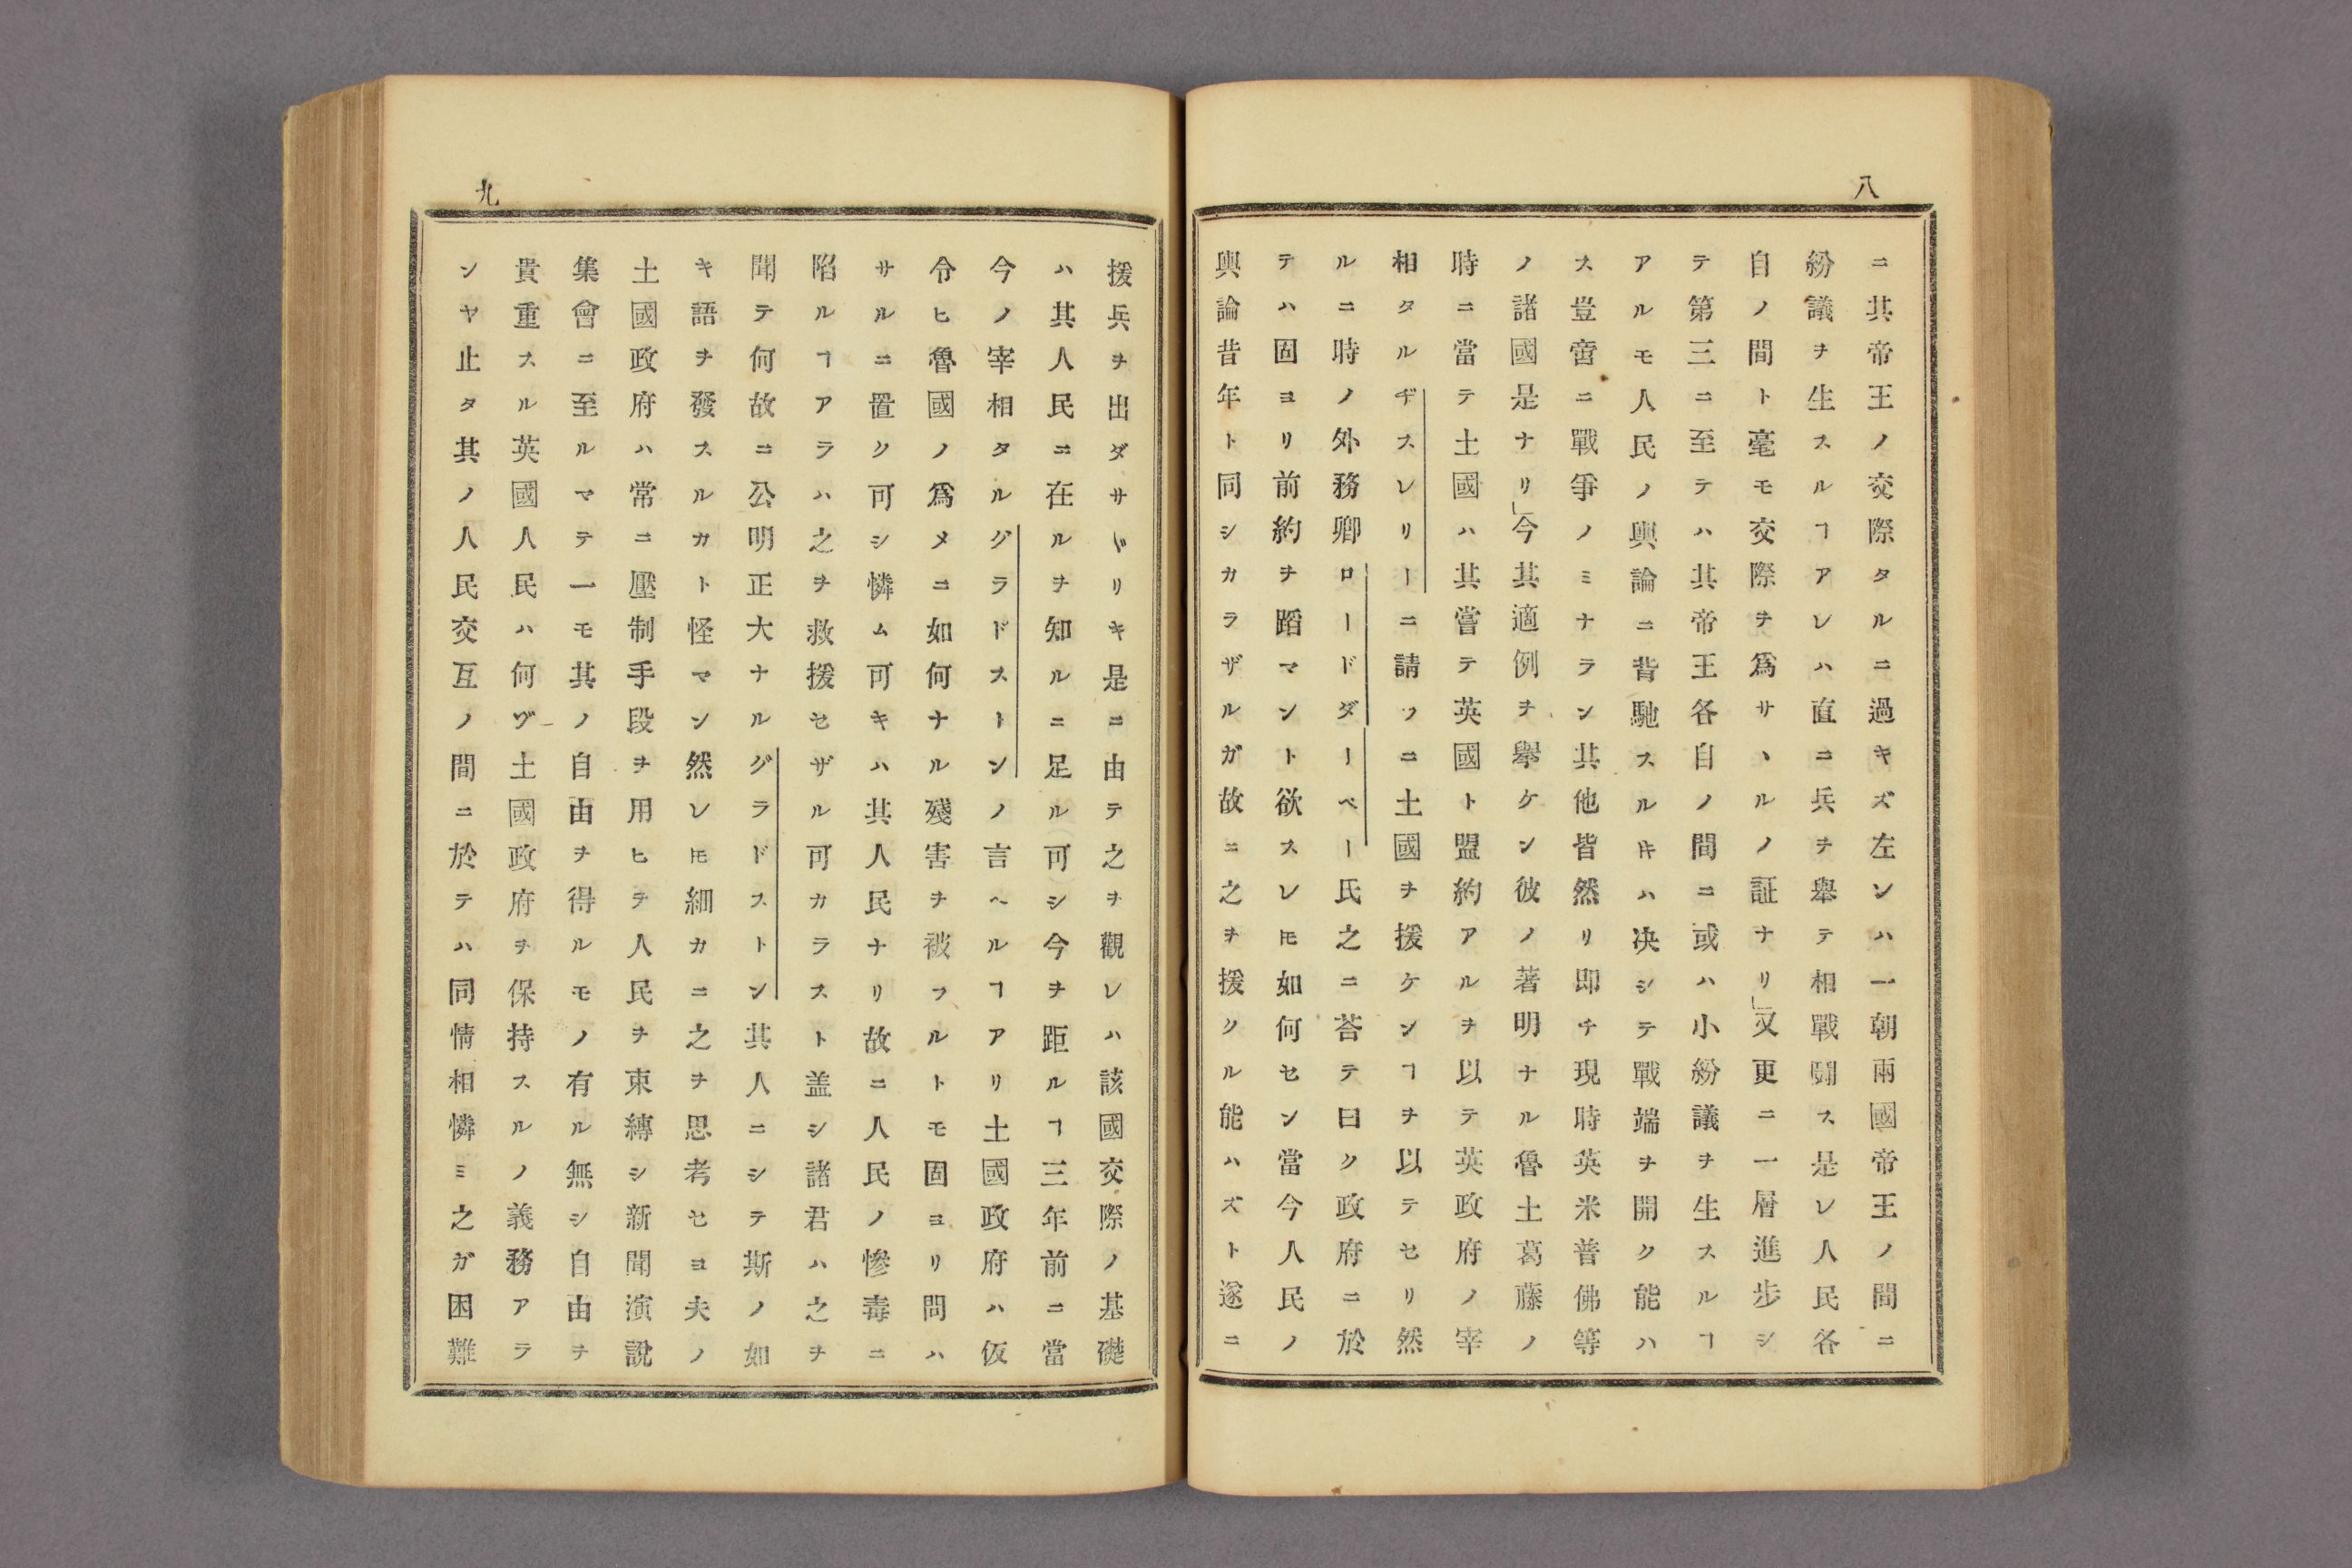 八
ニ其帝王ノ交際タルニ過キズ左ンハ一朝兩國帝王ノ間ニ
紛議ヲ生スルヿアレハ直ニ兵ヲ舉テ相戰鬪ス是レ人民各
自ノ間ト毫モ交際ヲ爲サヽルノ証ナリ」又更ニ一層進步シ
テ第三ニ至テハ其帝王各自ノ間ニ或ハ小紛議ヲ生スルヿ
アルモ人民ノ輿論ニ背馳スルㇳキハ决シテ戰端ヲ開ク能ハ
ス豈啻ニ戰爭ノミナラン其他皆然リ即チ現時英米普佛等
ノ諸國是ナリ」今其適例ヲ舉ケン彼ノ著明ナル魯土葛藤ノ
時ニ當テ土國ハ其嘗テ英國ト盟約アルヲ以テ英政府ノ宰
相タルヂスレリーニ請フニ土國ヲ援ケンヿヲ以テセリ然
ルニ時ノ外務卿ロードダーベー氏之ニ荅テ曰ク政府ニ於
テハ固ヨリ前約ヲ蹈マント欲スレ𪜈如何セン當今人民ノ
輿論昔年ト同シカラザルガ故ニ之ヲ援クル能ハズト遂ニ
九
援兵ヲ出ダサヾリキ是ニ由テ之ヲ觀レハ該國交際ノ基礎
ハ其人民ニ在ルヲ知ルニ足ル可シ今ヲ距ルヿ三年前ニ當
今ノ宰相タルグラドストンノ言ヘルヿアリ土國政府ハ仮
令ヒ魯國ノ爲メニ如何ナル殘害ヲ被フルトモ固ヨリ問ハ
サルニ置ク可シ憐ム可キハ其人民ナリ故ニ人民ノ慘毒ニ
陷ルヿアラハ之ヲ救援セザル可カラスト盖シ諸君ハ之ヲ
聞テ何故ニ公明正大ナルグラドストン其人ニシテ斯ノ如
キ語ヲ發スルカト怪マン然レ𪜈細カニ之ヲ思考セヨ夫ノ
土國政府ハ常ニ壓制手段ヲ用ヒテ人民ヲ束縛シ新聞演說
集會ニ至ルマテ一モ其ノ自由ヲ得ルモノ有ル無シ自由ヲ
貴重スル英國人民ハ何ヅ土國政府ヲ保持スルノ義務アラ
ンヤ止タ其ノ人民交互ノ間ニ於テハ同情相憐ミ之ガ困難